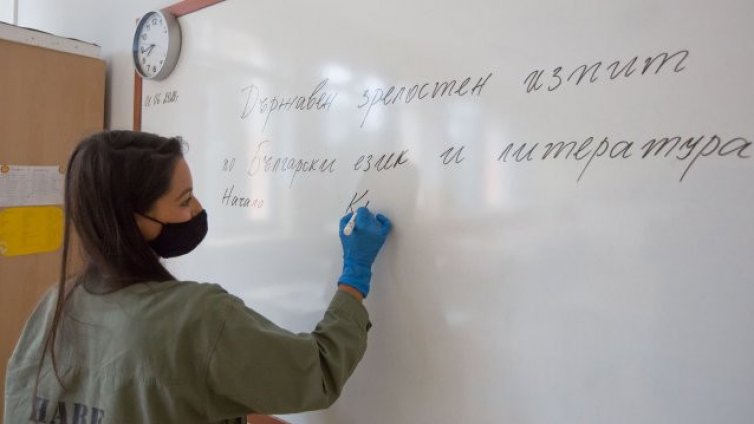 Държавен зрелостен изпит
по Български език и литература
Начало К
HABE